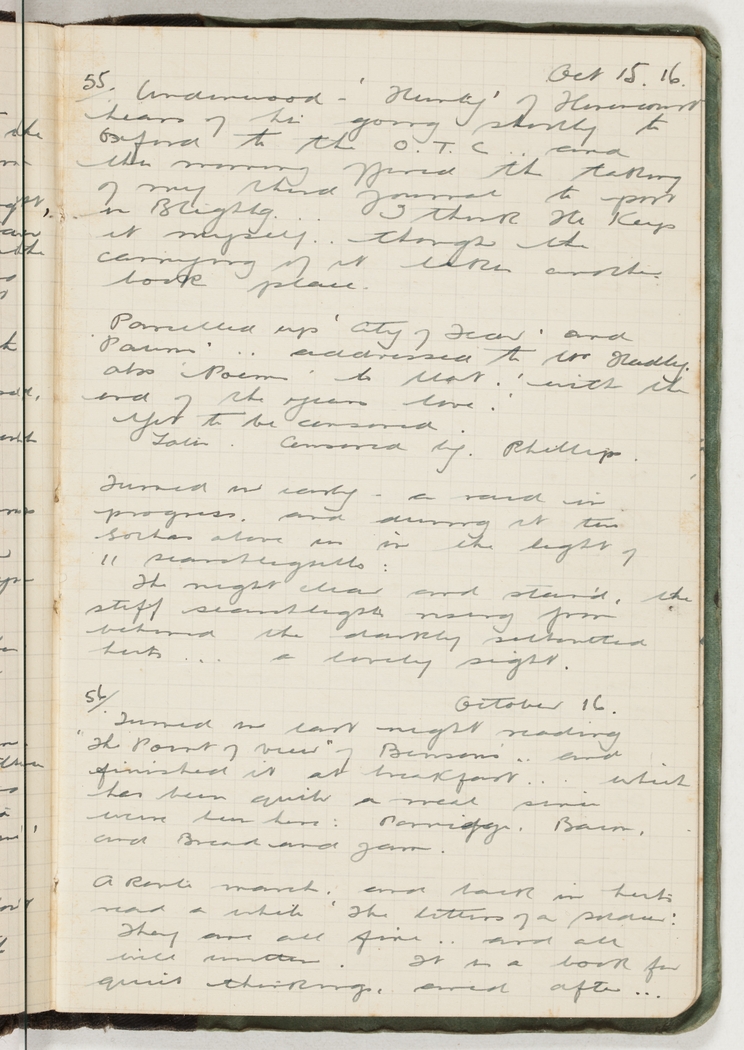 55. Oct 15. 16.
Underwood - 'Hunty' of
hears of his going shortly to
Oxford to the O.T.C... and
this morning offered the taking
of my third journal to post
in Blighty... I think I'll keep
it myself.. though the
carrying of it takes another
book place.
Parcelled up 'City of Fear' and
'Poems'.. addressed to Mr Hadly.
also 'Poems' to 'with the
end of the years love.'
Yet to be censored.
Later. Censored by. Phillips.
Turned in early - a raid in
progress. and during it two
above us in the light of
11 searchlights:
The night clear and starr'd, the
stiff searchlights rising from
behind the darkly silhouetted
huts... a lovely sight.
56/ October 16.
Turned in last night reading
"The Point of view" of Benson's.. and
finished it at breakfast... which
has been quite a meal since
weve been here: Porridge. Bacon.
and Bread and Jam.
A Route march. and back in huts
read a while 'The letters of a Soldier:'
They are all fine.. and all
well written. It is a book for
quiet thinking. and after...
the